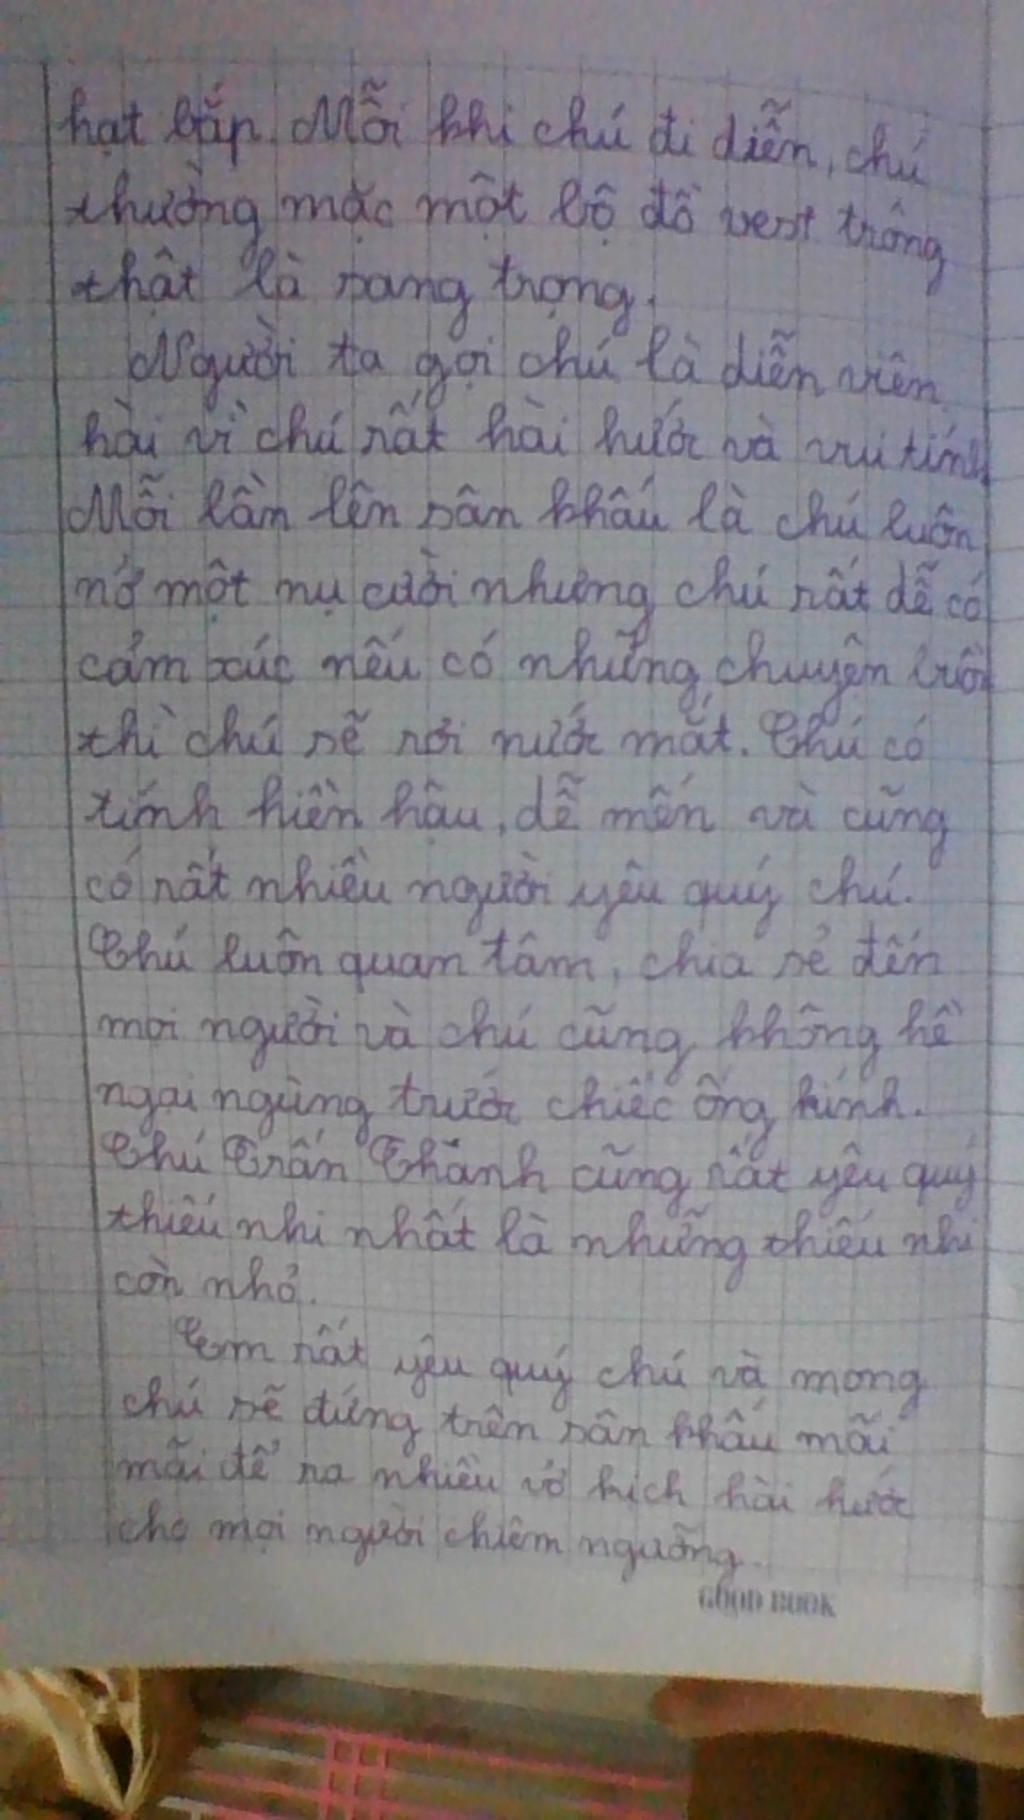 hạt bắp. Mỗi khi chú đi diễn, chú
thường mặc một bộ đồ vest trông
thật là sang trọng.
Người ta gọi chú là diễn viên
hài vì chú rất hài hước và vui tính.
Mỗi lần lên sân khấu là chú luôn
nở một nụ cười nhưng chú rất dễ có
cảm xúc nếu có những chuyện buồn
thì chú sẽ rơi nước mắt. Chú có
tính hiền hậu, dễ mến và cũng
có rất nhiều người yêu quý chú.
Chú luôn quan tâm, chia sẻ đến
mọi người và chú cũng không hề
ngại ngùng trước chiếc ống kính.
Chú Trấn Thành cũng rất yêu quý
thiếu nhi nhất là những thiếu nhi
còn nhỏ.
Em rất yêu quý chú và mong
chú sẽ đứng trên sân khấu mãi
mãi để ra nhiều vở kịch hài hước
cho mọi người chiêm ngưỡng.
GOOD BOOK